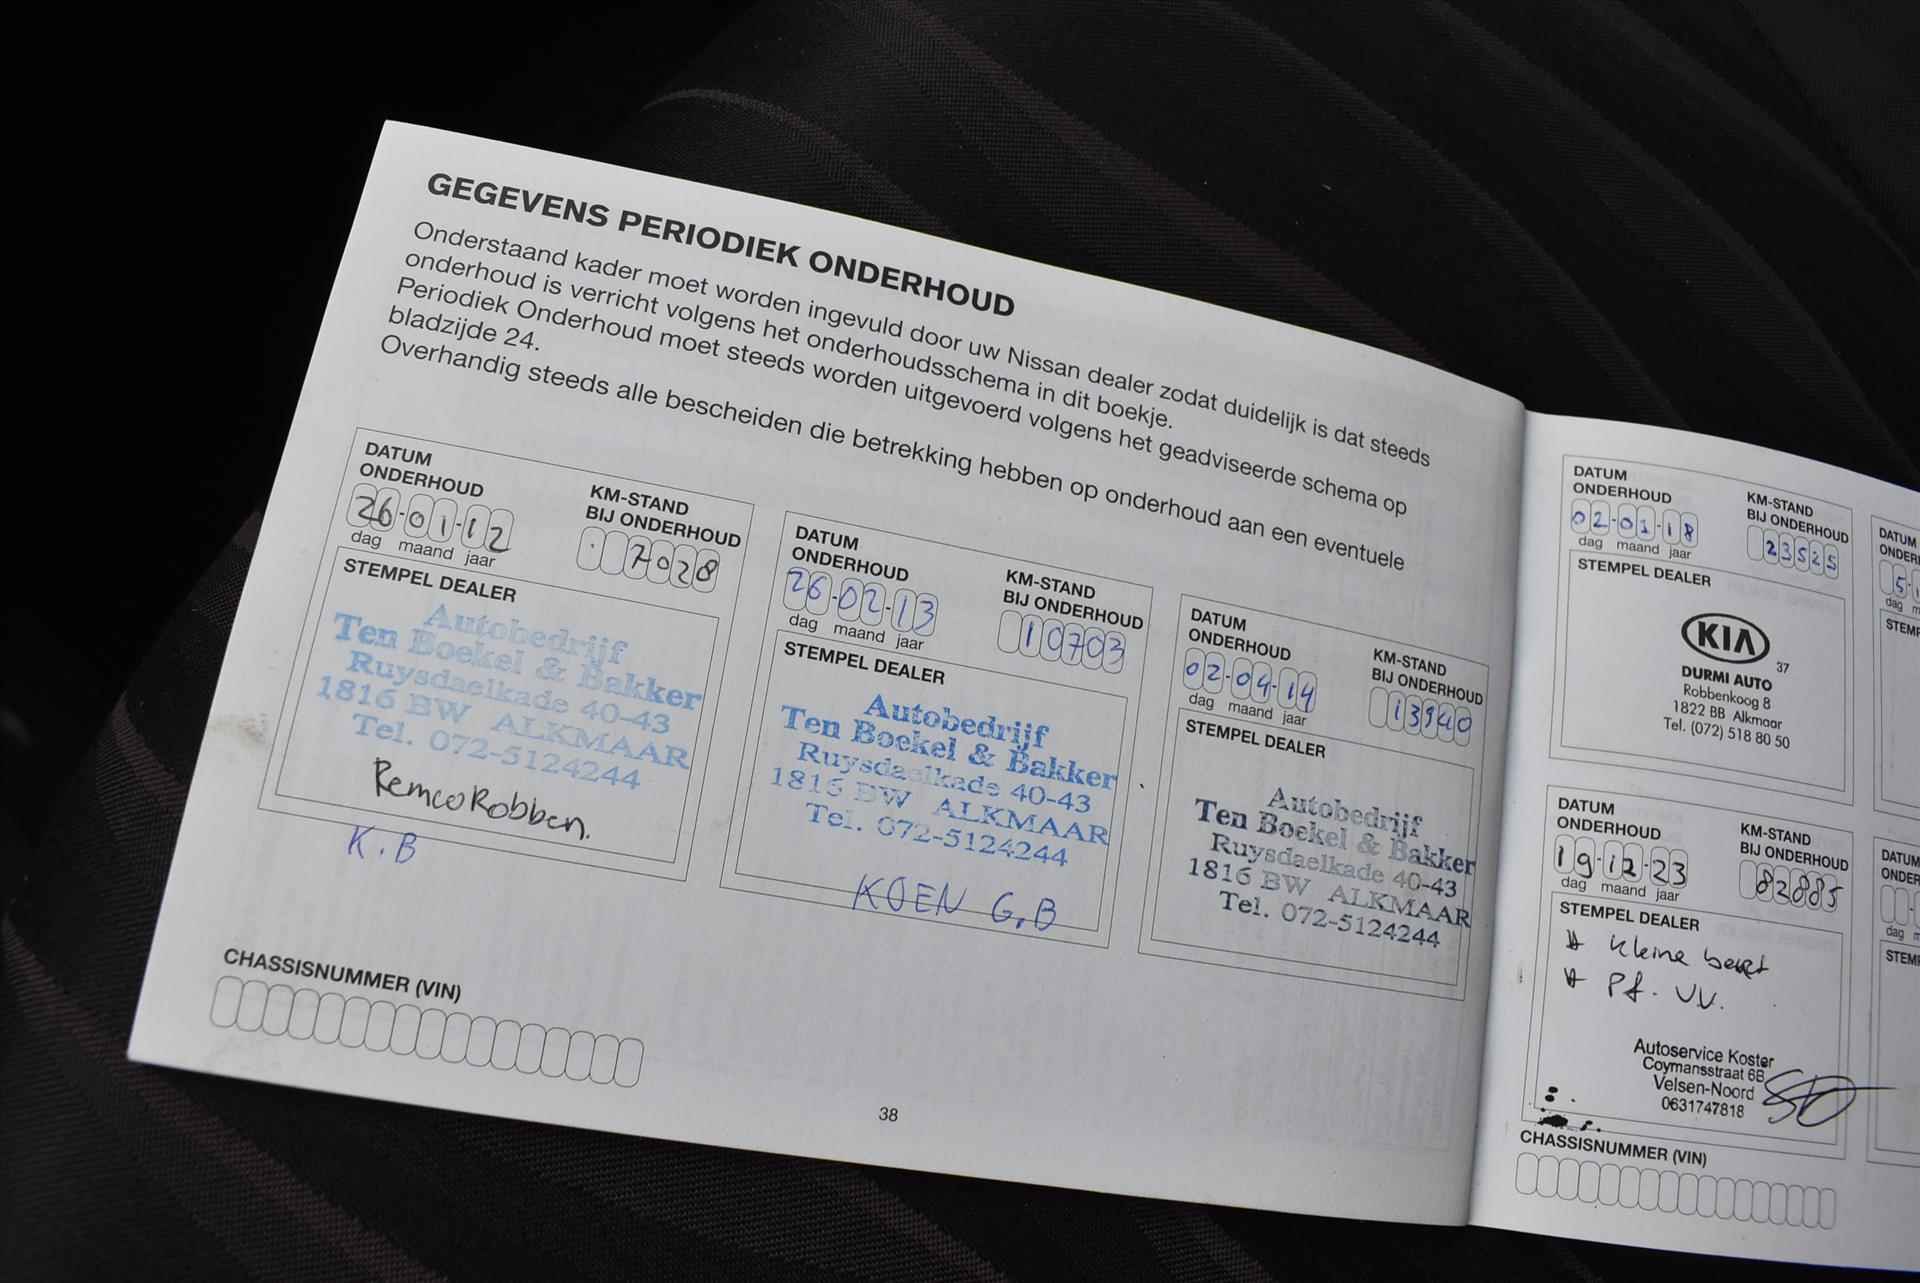 GEGEVENS PERIODIEK ONDERHOUD
Onderstaand kader moet worden ingevuld door uw Nissan dealer zodat duidelijk is dat steeds
onderhoud is verricht volgens het onderhoudsschema in dit boekje.
Periodiek Onderhoud moet steeds worden uitgevoerd volgens het geadviseerde schema op
bladzijde 24.
Overhandig steeds alle bescheiden die betrekking hebben op onderhoud aan een eventuele
DATUM
ONDERHOUD
26-01-12
dag maand jaar
KM-STAND
BIJ ONDERHOUD
7028
STEMPEL DEALER
Autobedrijf
Ten Boekel & Bakker
Ruysdaelkade 40-43
1816 BW ALKMAAR
Tel. 072-5124244
Remco Robben.
K.B
DATUM
ONDERHOUD
26-02-13
dag maand jaar
KM-STAND
BIJ ONDERHOUD
10703
STEMPEL DEALER
Autobedrijf
Ten Boekel & Bakker
Ruysdaelkade 40-43
1816 BW ALKMAAR
Tel. 072-5124244
KOEN G.B
DATUM
ONDERHOUD
02-04-14
dag maand jaar
KM-STAND
BIJ ONDERHOUD
13940
STEMPEL DEALER
Autobedrijf
Ten Boekel & Bakker
Ruysdaelkade 40-43
1816 BW ALKMAAR
Tel. 072-5124244
CHASSISNUMMER (VIN)
38
DATUM
ONDERHOUD
02-01-18
dag maand jaar
KM-STAND
BIJ ONDERHOUD
23525
STEMPEL DEALER
KIA
37
DURMI AUTO
Robbenkoog 8
1822 BB Alkmaar
Tel. (072) 518 80 50
DATUM
ONDERHOUD
19-12-23
dag maand jaar
KM-STAND
BIJ ONDERHOUD
82885
STEMPEL DEALER
Kleine beurt
Pf. VV.
Autoservice Koster
Coymansstraat 6B
Velsen-Noord
0631747818
CHASSISNUMMER (VIN)
DATUM
dag
DATUM
dag